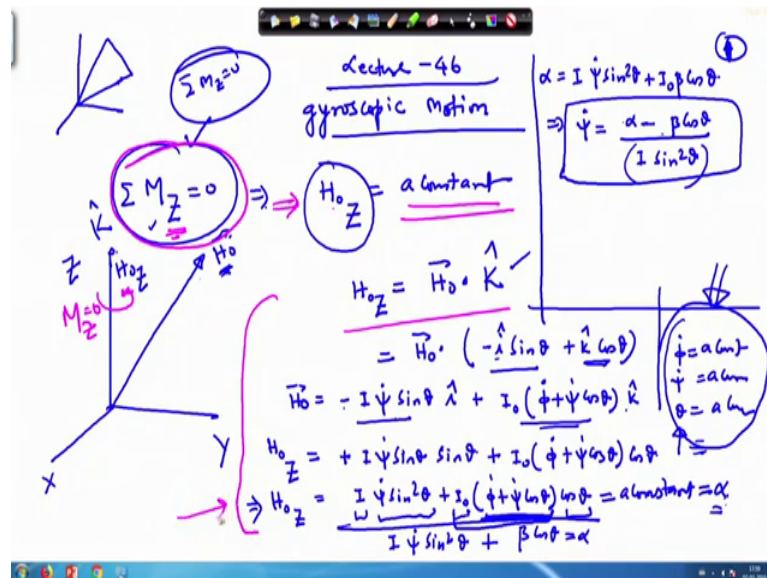 Lecture-46
gyroscopic Motion
Σ M_Z=0
Σ M_Z = 0 ⇒ ⇒ H_{0Z} = a constant
K̂
Z
H_{0Z}
H_0
M_Z=0
X
Y
H_{0Z} = H⃗_0 · K̂
= H⃗_0 · (-î sinθ + k̂ cosθ)
H⃗_0 = - I ψ̇ sinθ î + I_0 (φ̇+ψ̇ cosθ) k̂
H_{0Z} = + I ψ̇ sinθ sinθ + I_0 (φ̇+ψ̇ cosθ) cosθ
⇒ H_{0Z} = I ψ̇ sin²θ + I_0 (φ̇+ψ̇ cosθ) cosθ = a constant = α
I ψ̇ sin²θ + β cosθ = α
①
α = I ψ̇ sin²θ + I_0 β cosθ
⇒ ψ̇ = α - β cosθ / (I sin²θ)
φ̇ = a con
ψ̇ = a con
θ = a con